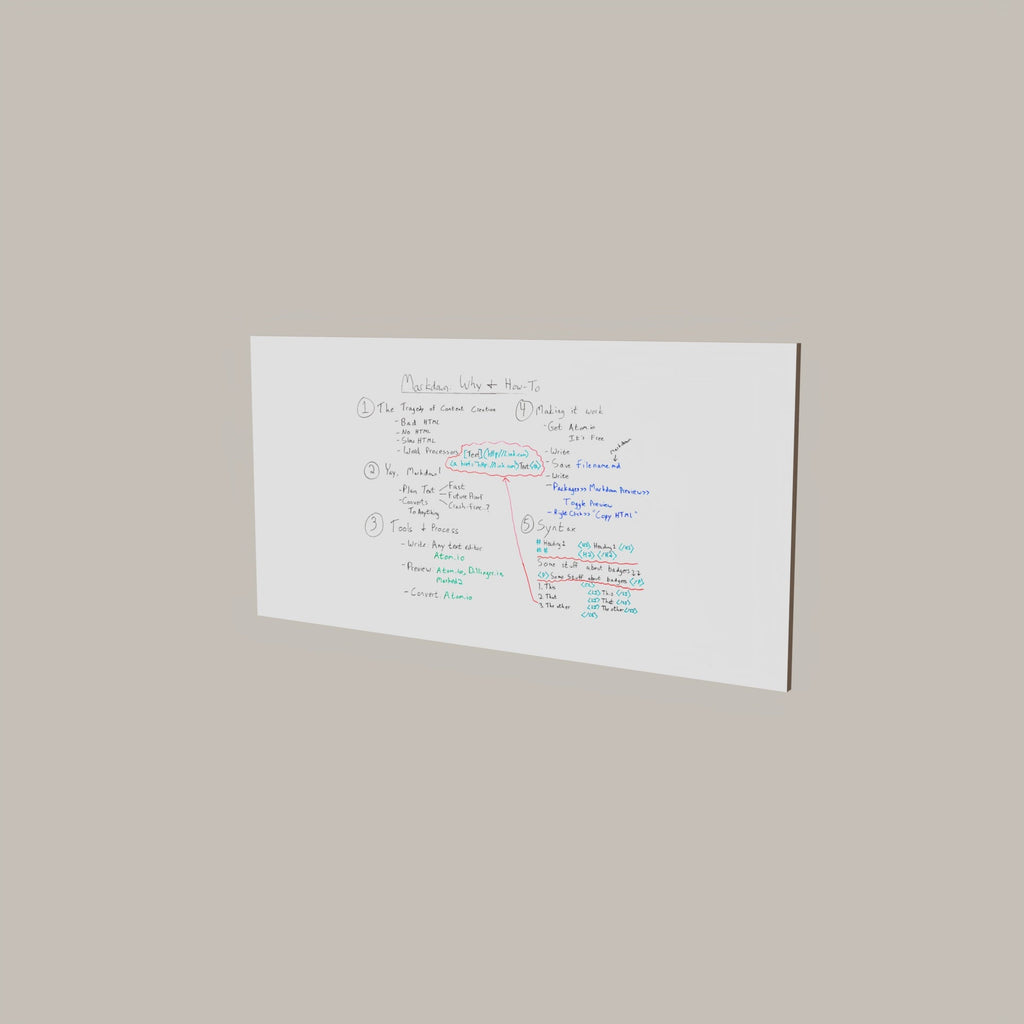 Markdown: Why & How-To
1 The Tragedy of Content Creation
- Bad HTML
- No HTML
- Slow HTML
- Word Processors
2 Yay, Markdown!
- Plain Text
Fast
Future Proof
Crash-free..?
- Converts
To Anything
3 Tools & Process
- Write: Any text editor
Atom.io
- Preview: Atom.io, Dillinger.io
Marked2
- Convert: Atom.io
[Text](http://Link.com)
<a href="http://Link.com">Text</a>
4 Making it work
- Get Atom.io
It's Free
- Write
markdown
- Save filename.md
- Write
- Packages>> Markdown Preview>>
Toggle Preview
- Right Click>> "Copy HTML"
5 Syntax
# Heading 1 Heading 1
## <H2> </H2>
Some stuff about badgers
<P> Some Stuff about badgers </P>
1. This
<LI> This </LI>
2. That <LI> That </LI>
3. The other <LI> The other </LI>
</OL>